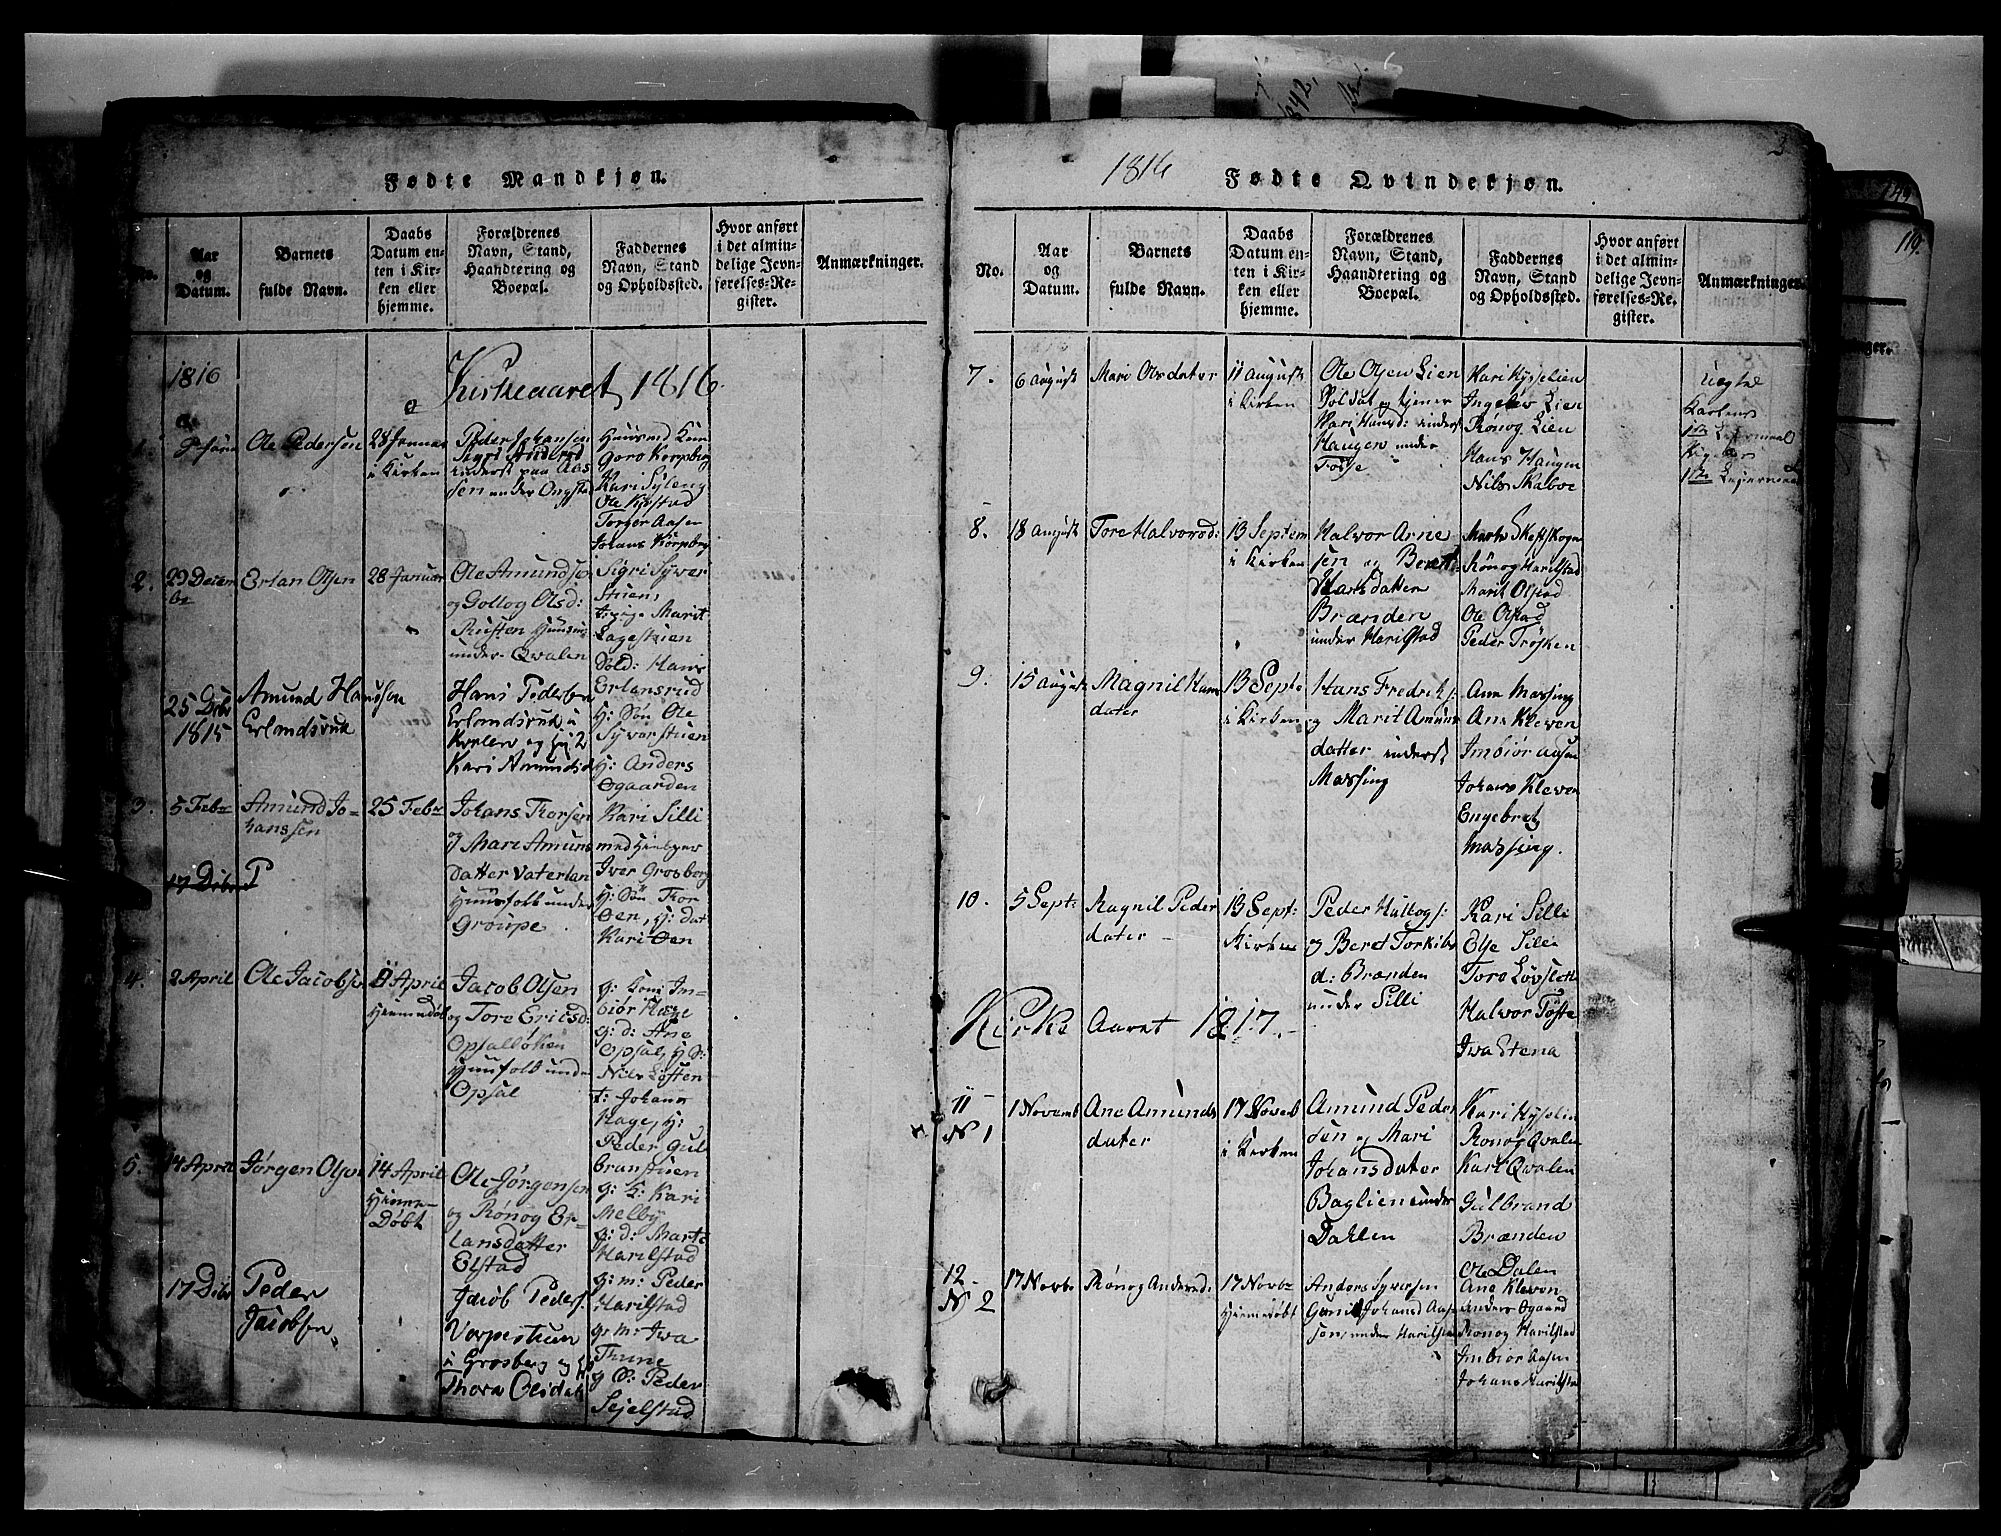 Fødte Mandkjøn.
No.
Aar
og
Datum.
Barnets
fulde Navn.
Daabs
Datum en-
ten i Kir-
ken eller
hjemme.
Forældrenes
Navn, Stand,
Haandtering og
Boepæl.
Faddernes
Navn, Stand
og Opholdssted.
Hvor anført
i det almin-
delige Jevn-
førelses-Re-
gister.
Anmærkninger.
1816
Kirkeaaret 1816
1.
Ole Pedersen
28 Jennar
i Kirken
Peder Johansen
Sigri Andersd
inderst paa Aas
sen under Ongstad
Huusmd Kun
Goro Korpberg
Kari Syleng
Ole Kirstad
Torger Aasen
Johans Korpberg
2.
29 Decem
br
Erlan Olsen
28 Januar
Ole Amundsen
og Gollog Olsd:
Rusten Huusm
under Qvalen
Sigri Syver
Stuen,
Marit
Lagestuen
Sold: Hans
Erlansrud
H: Søn Ole
Syverstuen
H: Anders
Øgaarden
25 Dcbr
1815
Amund Hansson
Erlandsrud
Hans Peders
Erlandsrud u
Kvalen og
Kari Amundsd
3.
5 Febr
Amund Jo-
hanssen
25 Febr
Johans Thorsen
og Mari Amuns
datter Vaterlan
Huusfolk under
Groupe
Kari Silli
med Hielper
Iver Grosberg
H: Søn Tor
Øen, H: dat
Kari Øen
17 Dcbr P
4.
2 April
Ole Jacobsen
8 April
Hiemmedøbt
Jacob Olsen
og Tore Ericsd:
Opsalløken
Huusfolk unde
Opsal
g: Koni Im-
biør Hage
g: d: Ane
Opsal, H S:
Nils Løften
t: Johans
Hage, H:
Peder Gul
branstuen
5.
14 April
Jørgen Olsen
14 April
Hiemme-
Døbt
Ole Jørgensen
og Rønog Er-
lansdatter
Elstad
g: K: Kari
Melby
g: d: Marte
Harilstad
g: m: Peder
Harilstad
g: m: Iwa
Thune
g S: Peder
Sejelstad
17 Dcbr
Peder
Jacobsen
Jacob Peders.
Verpestuen
u Grosberg og H
Thora Olsdat
1816
Fødte Qvindekjøn.
3
No.
Aar
og
Datum.
Barnets
fulde Navn.
Daabs
Datum en-
ten i Kir-
ken eller
hjemme.
Forældrenes
Navn, Stand,
Haandtering og
Boepæl.
Faddernes
Navn, Stand
og Opholdssted.
Hvor anført
i det almin-
delige Jevn-
førelses-Re-
gister.
Anmærkninger.
7.
6 August
Mari Olsdater
11 August
i Kirken
Ole Olsen Lien
Soldat og tjener
Kari Hansd: inderst
Haugen under
Tofte
Kari Kysselien
Ingeløv Lien
Rønog Lien
Hans Haugen
Nils Skaboe
Uægte
Karlens
1ste Leiermaal
Pigens
1ste Leiermaal
8.
18 August
Tore Halvorsd:
13 Septem
i Kirken
Halvor Arne
sen og Beret
Hansdatter
Brænden
under Harilstad
Marte Skefsskogn
Rønog Harilstad
Marit Olstad
Ole Olstad
Peder Trøsken
9.
15 August
Magnil Hans
dater
13 Sept
i Kirken
Hans Fredriks:
og Marit Amuns
datter inderst
Massing
Ane Massing
Ane Kleven
Imbiør Aasen
Johans Kleven
Engebret
Massing.
10.
5 Sept:
Magnil Peder
dater
13 Sept:
Kirken
Peder Hallogs:
og Beret Torkils
d: Brænden
under Silli
Kari Silli
Else Silli
Tore Løvslett
Halvor Tofte
Iwa Stena
Kirke Aaret 1817.
11
N 1
1 Novemb
Ane Amunds
dater
17 Noverb
i Kirken
Amund Peder
sen og Mari
Johansdater
Baglien under
Dahlen
Kari Kysslin
Ronog Qvalen
Kari Qvalen
Gulbrand
Brænden
Ole Dalen
12
N 2
17 Novbr
Rønog Andersd:
17 Novbr
Hiemmedøbt
Anders Syversen
Guni Johansd Aase
sen, under Harilsta
Ane Kleven
Anders Øgaard
Ronog Harilstad
Imbior Aasen
Johans Harilstad
119.